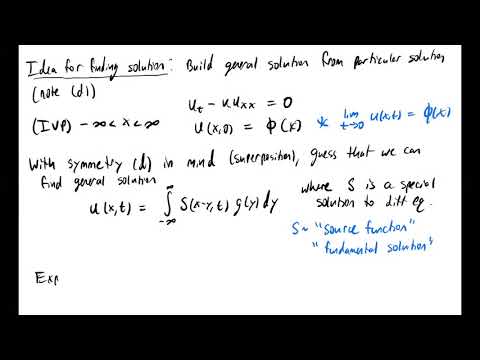 Idea for finding solution: Build general solution from particular solution
(note (d))
(IVP) -∞ < x < ∞
u_t - u u_xx = 0
u(x,0) = φ(x) * lim_{t→0} u(x,t) = φ(x)
With symmetry (d) in mind (superposition), guess that we can
find general solution
u(x,t) = ∫_{-∞}^{∞} S(x-y,t) g(y) dy
where S is a special
solution to diff eq.
S ~ "source function"
"fundamental solution"
Exp